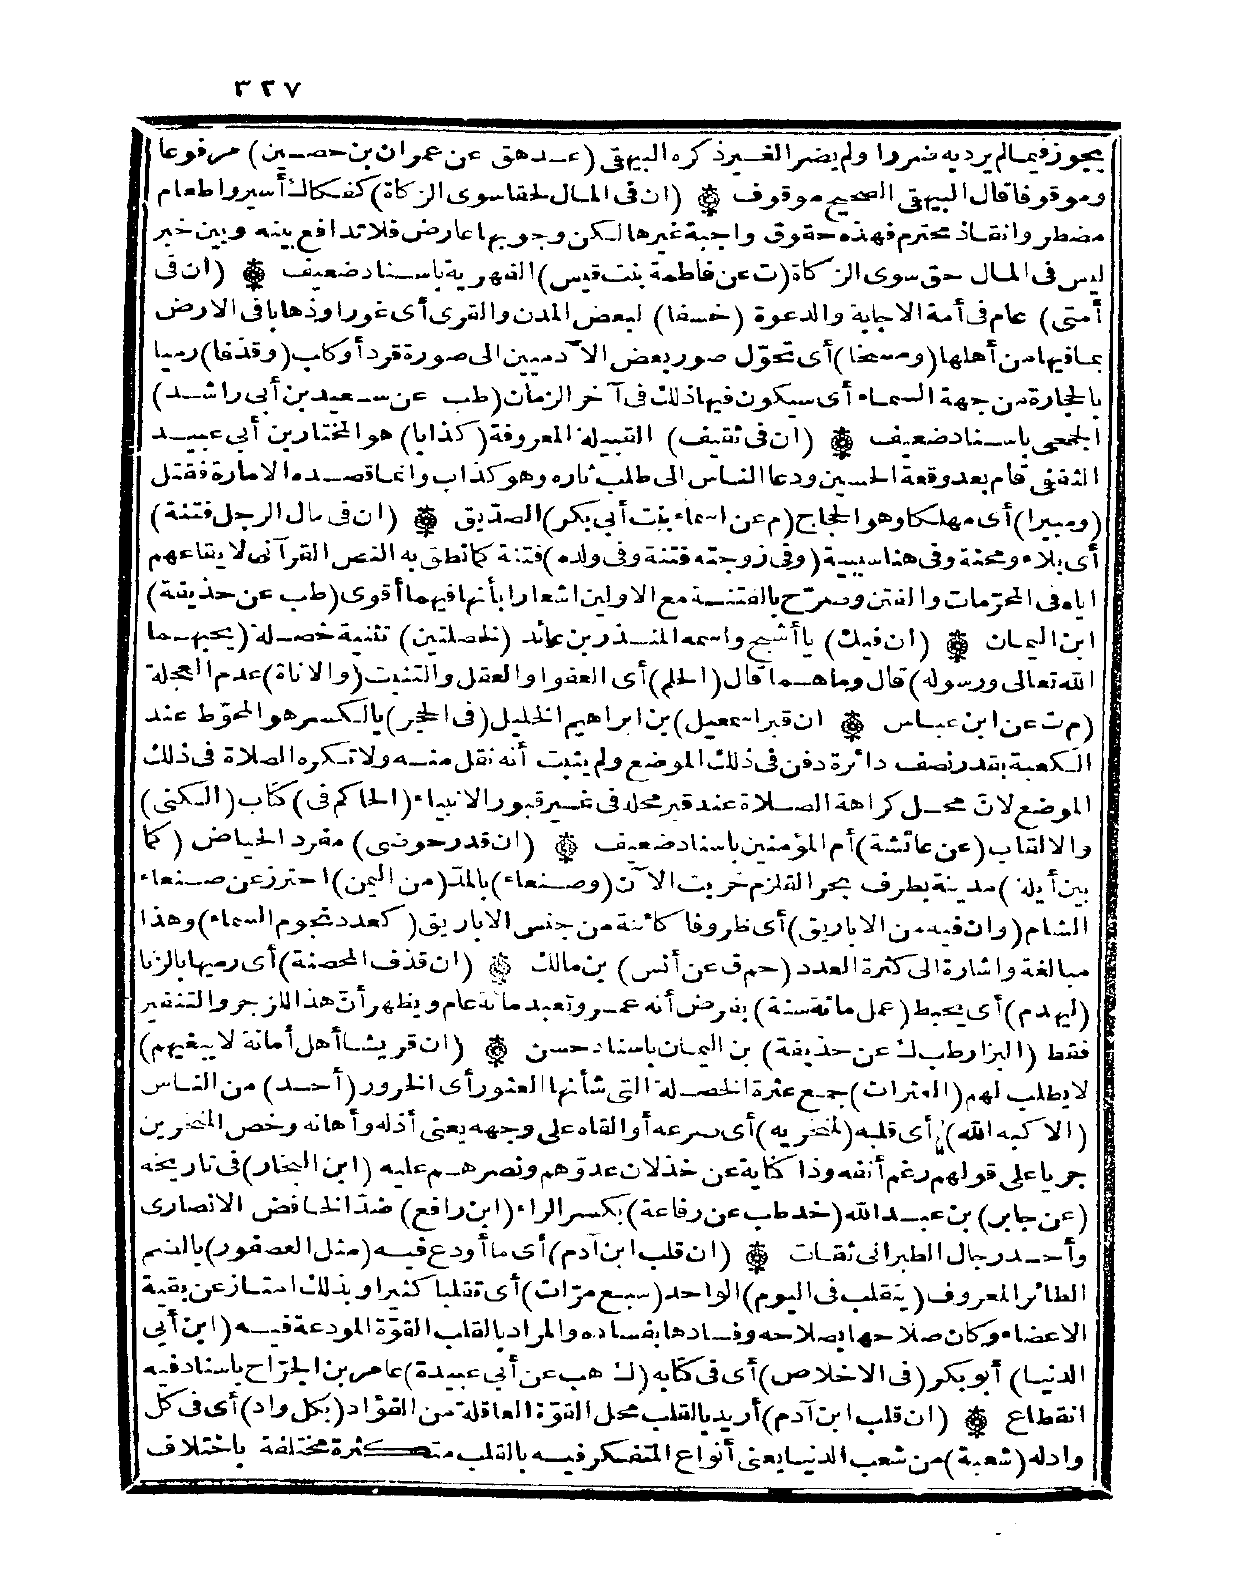 ٣٢٧
يجوز فيما لم يرد به ضررا ولم يضر الغير ذكره البيهقي (عد هق عن عمران بن حصين) مرفوعا
وموقوفا قال البيهقي الصحيح موقوف ۞ (ان في المال لحقا سوى الزكاة) كفكاك أسير واطعام
مضطر وانقاذ محترم فهذه حقوق واجبة غيرها لكن وجوبها عارض فلا تدافع بينه وبين خبر
ليس في المال حق سوى الزكاة (ت عن فاطمة بنت قيس) الفهرية باسناد ضعيف ۞ (ان في
أمتي) عام في أمة الاجابة والدعوة (خسفا) لبعض المدن والقرى أى غورا وذهابا فى الارض
بما فيها من أهلها (ومسخا) أى تحوّل صور بعض الآدميين الى صورة قرد أو كلب (وقذفا) رميا
بالحجارة من جهة السماء أى سيكون فيها ذلك فى آخر الزمان (طب عن سعيد بن أبى راشد)
الجمحى باسناد ضعيف ۞ (ان فى ثقيف) القبيلة المعروفة (كذابا) هو المختار بن أبى عبيد
الثقفى قام بعد وقعة الحسين ودعا الناس الى طلب ثاره وهو كذاب وانما قصده الامارة فقتل
(ومبيرا) أى مهلكا وهو الحجاج (م عن اسماء بنت أبى بكر) الصدّيق ۞ (ان فى مال الرجل فتنة)
أى بلاء ومحنة وفى هنا سببية (وفى زوجته فتنة وفى ولده) فتنة كما نطق به النص القرآنى لايقاعهم
اياه فى المحرّمات والفتن وصرّح بالفتنة مع الاولين اشعارا بأنها فيهما أقوى (طب عن حذيفة)
ابن اليمان ۞ (ان فيك) يا أشج واسمه المنذر بن عائد (لخصلتين) تثنية خصلة (يحبهما
الله تعالى ورسوله) قال وما هما قال (الحلم) أى العفو او العقل والتثبت (والاناة) عدم العجلة
(م ت عن ابن عباس ۞ ان قبر اسمعيل) بن ابراهيم الخليل (فى الحجر) بالكسر هو المحوّط عند
الكعبة بقدر نصف دائرة دفن فى ذلك الموضع ولم يثبت أنه نقل منه ولا تكره الصلاة فى ذلك
الموضع لانّ محل كراهة الصلاة عند قبر محله فى غير قبور الانبياء (الحاكم فى) كتاب (الكنى)
والالقاب (عن عائشة) أم المؤمنين باسناد ضعيف ۞ (ان قدر حوضى) مفرد الحياض (كما
بين أيلة) مدينة بطرف بحر القلزم خربت الآن (وصنعاء) بالمدّ (من اليمن) احترز عن صنعاء
الشام (وان فيه من الاباريق) أى ظروفا كائنة من جنس الاباريق (كعدد نجوم السماء) وهذا
مبالغة واشارة الى كثرة العدد (حم ق عن أنس) بن مالك ۞ (ان قذف المحصنة) أى رميها بالزنا
(ليهدم) أى يحبط (عمل مائة سنة) بفرض أنه عمر وتعبد مائة عام ويظهر أنّ هذا للزجر والتنفير
فقط (البزار طب ك عن حذيفة) بن اليمان باسناد حسن ۞ (ان قريشا أهل أمانة لا يبغيهم)
لا يطلب لهم (العثرات) جمع عثرة الخصلة التى شأنها العثور أى الخرور (أحد) من الناس
(الا كبه الله) أى قلبه (لمنخريه) أى صرعه أو القاه على وجهه يعنى أذله وأهانه وخص المنخرين
جريا على قولهم رغم أنفه وذا كناية عن خذلان عدوّهم ونصرهم عليه (ابن النجار) فى تاريخه
(عن جابر) بن عبد الله (خد طب عن رفاعة) بكسر الراء (ابن رافع) ضدّ الخافض الانصارى
وأحد رجال الطبرانى ثقات ۞ (ان قلب ابن آدم) أى ما أودع فيه (مثل العصفور) بالضم
الطائر المعروف (يتقلب فى اليوم) الواحد (سبع مرّات) أى تقلبا كثيرا وبذلك امتاز عن بقية
الاعضاء وكان صلاحها بصلاحه وفسادها بفساده والمراد بالقلب القوّة المودعة فيه (ابن أبى
الدنيا) أبو بكر (فى الاخلاص) أى فى كتابه (ك هب عن أبى عبيدة) عامر بن الجرّاح باسناد فيه
انقطاع ۞ (ان قلب ابن آدم) أريد بالقلب محل القوّة العاقلة من الفؤاد (بكل واد) أى فى كل
واد له (شعبة) من شعب الدنيا يعنى أنواع المتفكر فيه بالقلب متكثرة مختلفة باختلاف